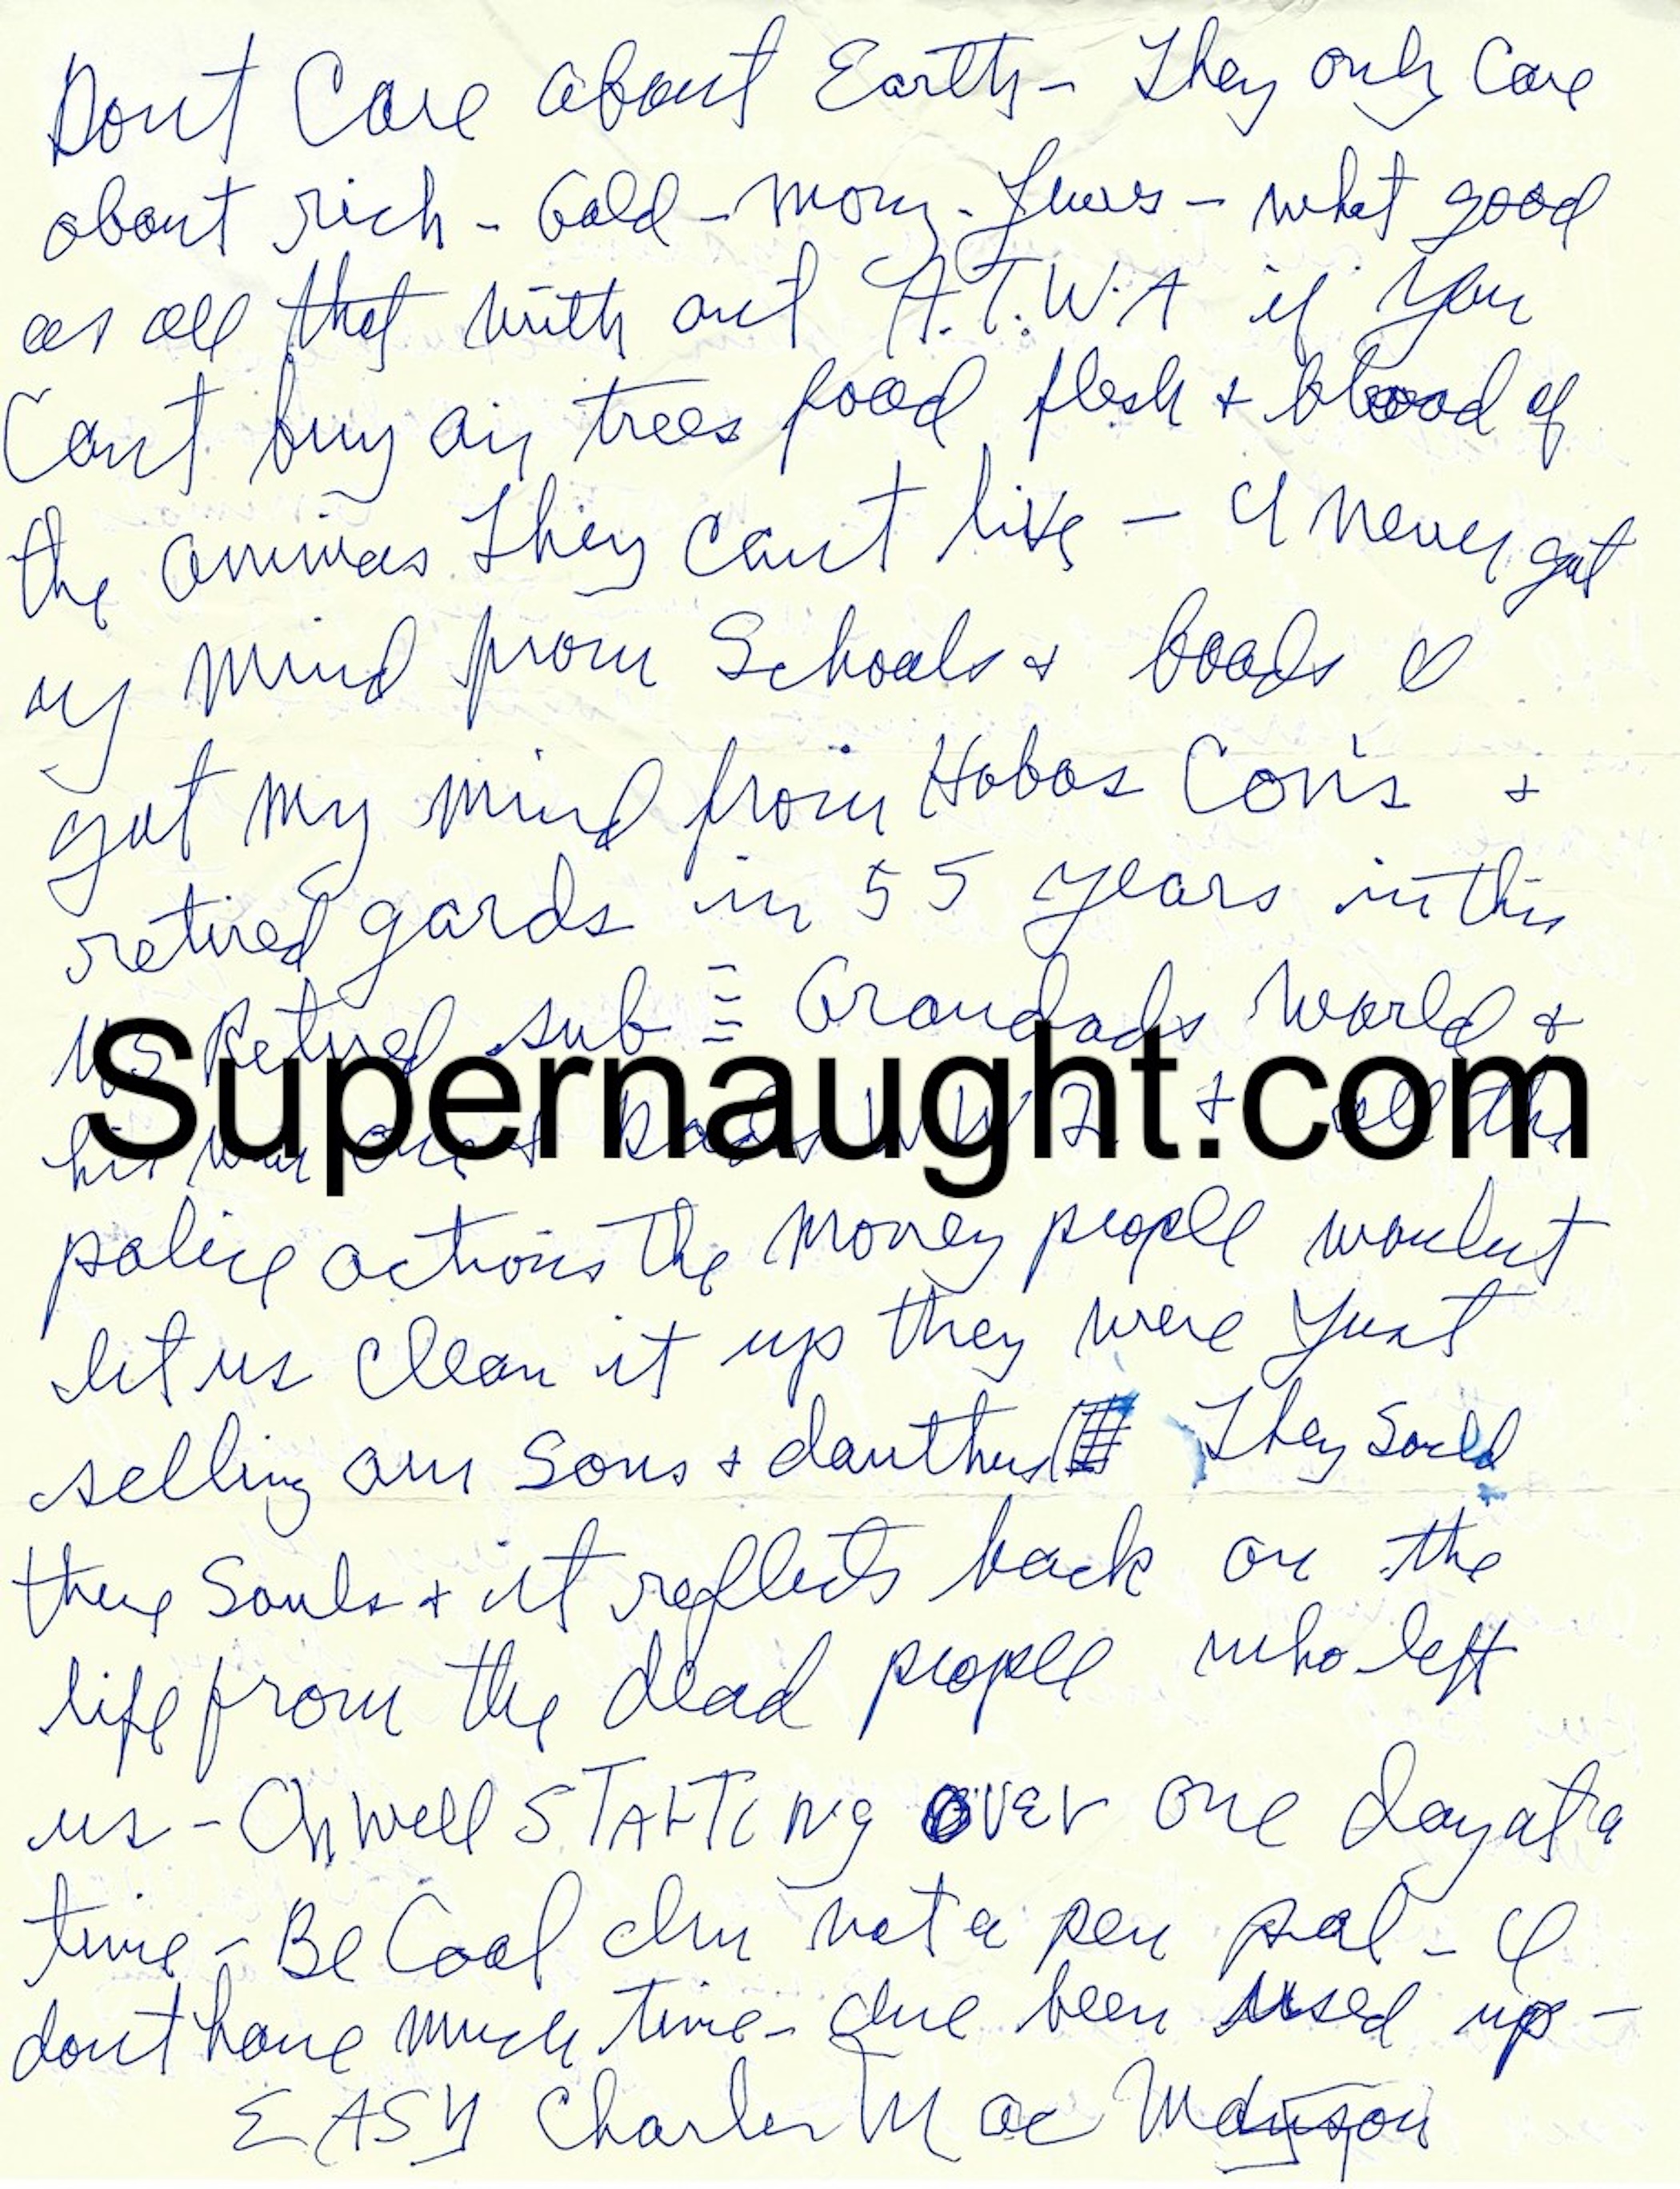 Dont Care about Earth - They only Care
about rich - Gold - mony - Juws - what good
as all that with out A.T.W.A if you
Cant buy air trees food flesh & blood of
the animas They cant live - I never got
my mind from Schools & books I
got my mind from Hobos Con's &
retired gards in 55 years in this
Retired sub Grandads World &
his war one & Dads WW 2 & all the
Supernaught.com
police actions the money people wouldnt
let us clean it up they were Just
selling our Sons & dauthers They Sould
there Souls & it reflects back on the
life from the dead people who left
us - Oh well STARTING OVER one day at a
time - Be Cool Im not a pen pal - I
dont have much time - Ive been used up -
EASY Charles M